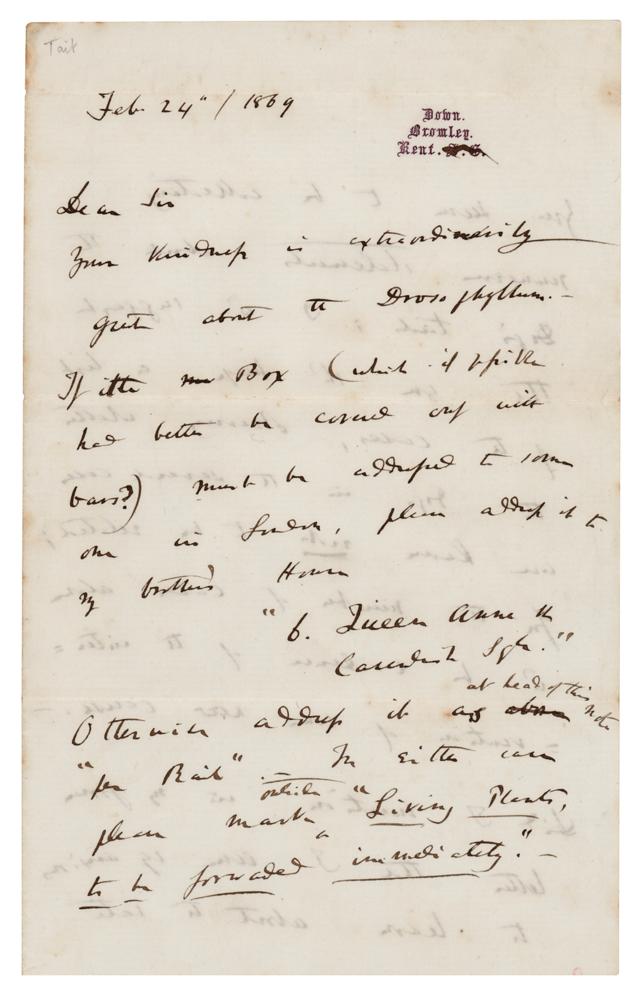 Tait
Feb. 24th / 1869
Down.
Bromley.
Kent. S.E.
Dear Sir
Your kindness is extraordinarily
great about the Drosophyllum.—
If the Box (which if possible
had better be covered only with
bars?) must be addressed to some
one in London, please address it to
my brother's House
"6. Queen Anne St
Cavendish Sqr."
Otherwise address it as above at head of this note
"per Rail".— In either case
please mark outside "Living Plants,
to be forwarded immediately."—